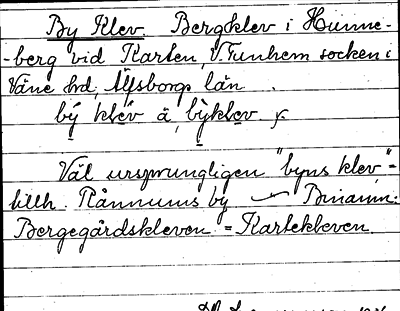 By Klev. Bergsklev i Hunne-
-berg vid Karten, V. Tunhem socken i
Väne hd, Älfsborgs län.
by klev ä, byklev f.
Väl ursprungligen "byns klev" =
tillh. Rånnums by — Binamn:
Bergegårdskleven = Kartekleven